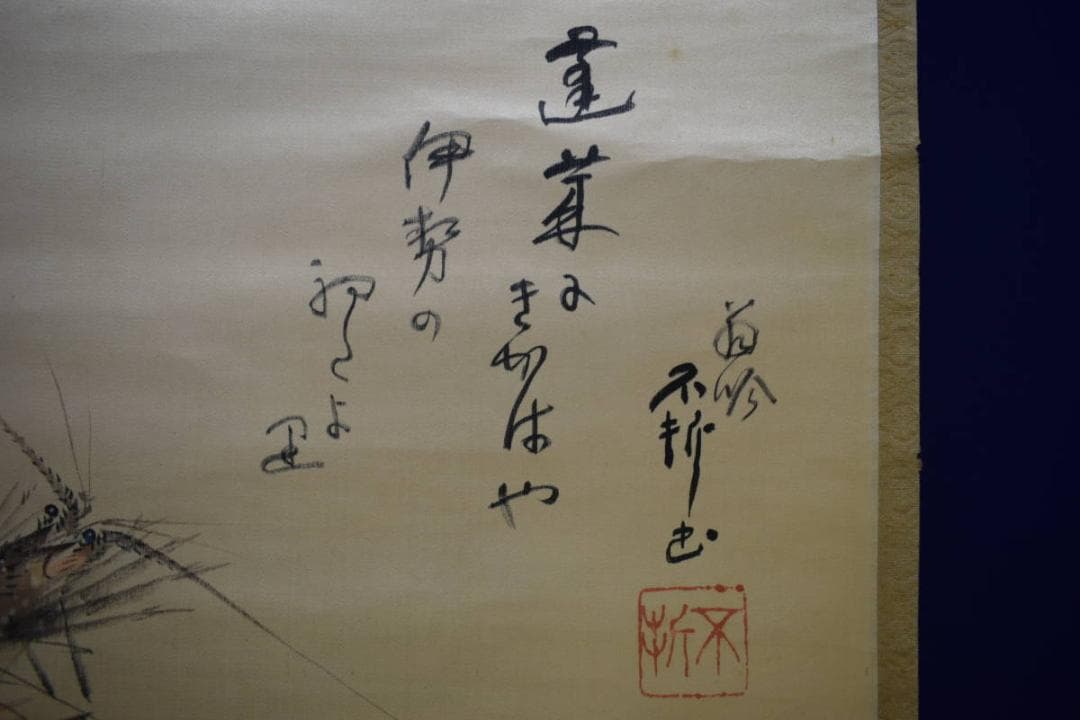 翁吟
不折
蓬莱に
きかはや
伊勢の
初たよ
里
不折